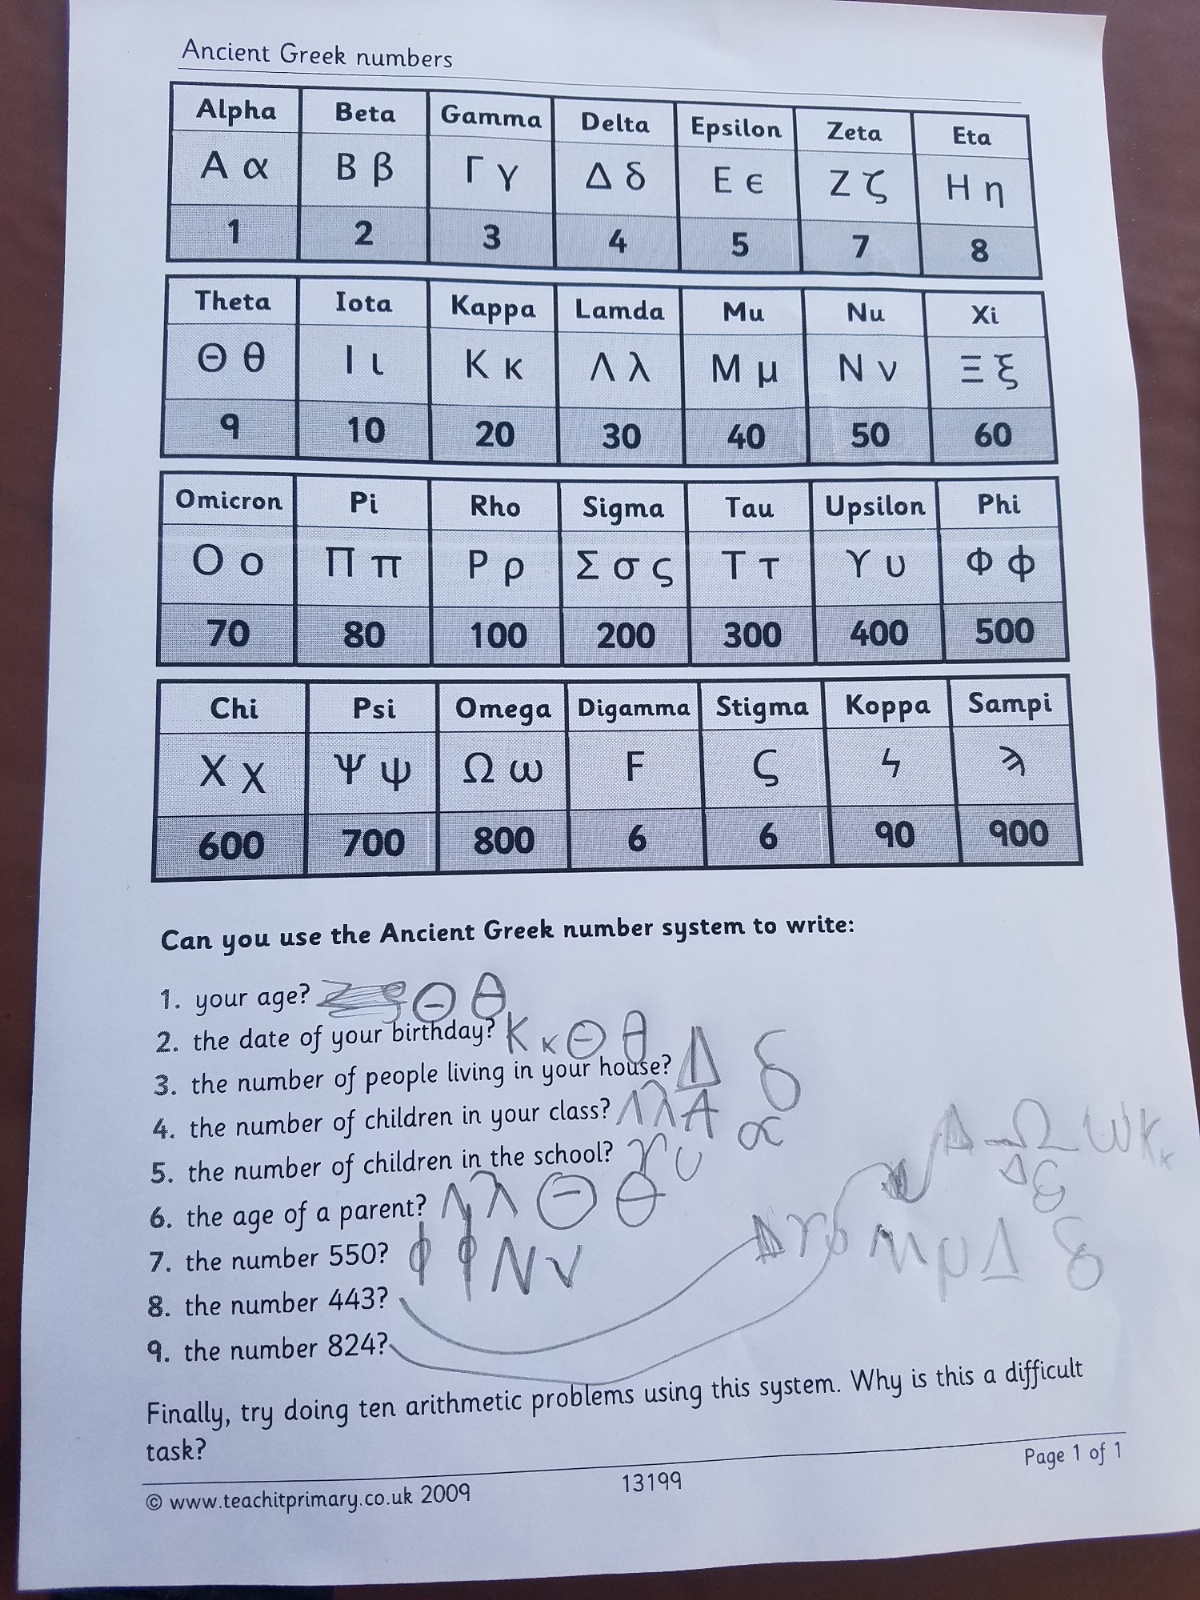 Ancient Greek numbers
Alpha Beta Gamma Delta Epsilon Zeta Eta
Α α Β β Γ γ Δ δ Ε ϵ Ζ ζ Η η
1 2 3 4 5 7 8
Theta Iota Kappa Lamda Mu Nu Xi
Θ θ Ι ι Κ κ Λ λ Μ μ Ν ν Ξ ξ
9 10 20 30 40 50 60
Omicron Pi Rho Sigma Tau Upsilon Phi
Ο ο Π π Ρ ρ Σ σ ς Τ τ ϒ υ Φ ϕ
70 80 100 200 300 400 500
Chi Psi Omega Digamma Stigma Koppa Sampi
Χ χ Ψ ψ Ω ω F ϛ ϟ ϡ
600 700 800 6 6 90 900
Can you use the Ancient Greek number system to write:
1. your age? Θ θ
2. the date of your birthday? Κ κ Θ θ
3. the number of people living in your house? Δ δ
4. the number of children in your class? Λ λ Α α
5. the number of children in the school? ϒ υ
6. the age of a parent? Λ λ Θ θ
7. the number 550? ϕ ϕ Ν ν
8. the number 443? ϒ υ Μ μ Δ δ
9. the number 824? Ω ω Κ κ Δ δ
Finally, try doing ten arithmetic problems using this system. Why is this a difficult
task?
© www.teachitprimary.co.uk 2009 13199 Page 1 of 1